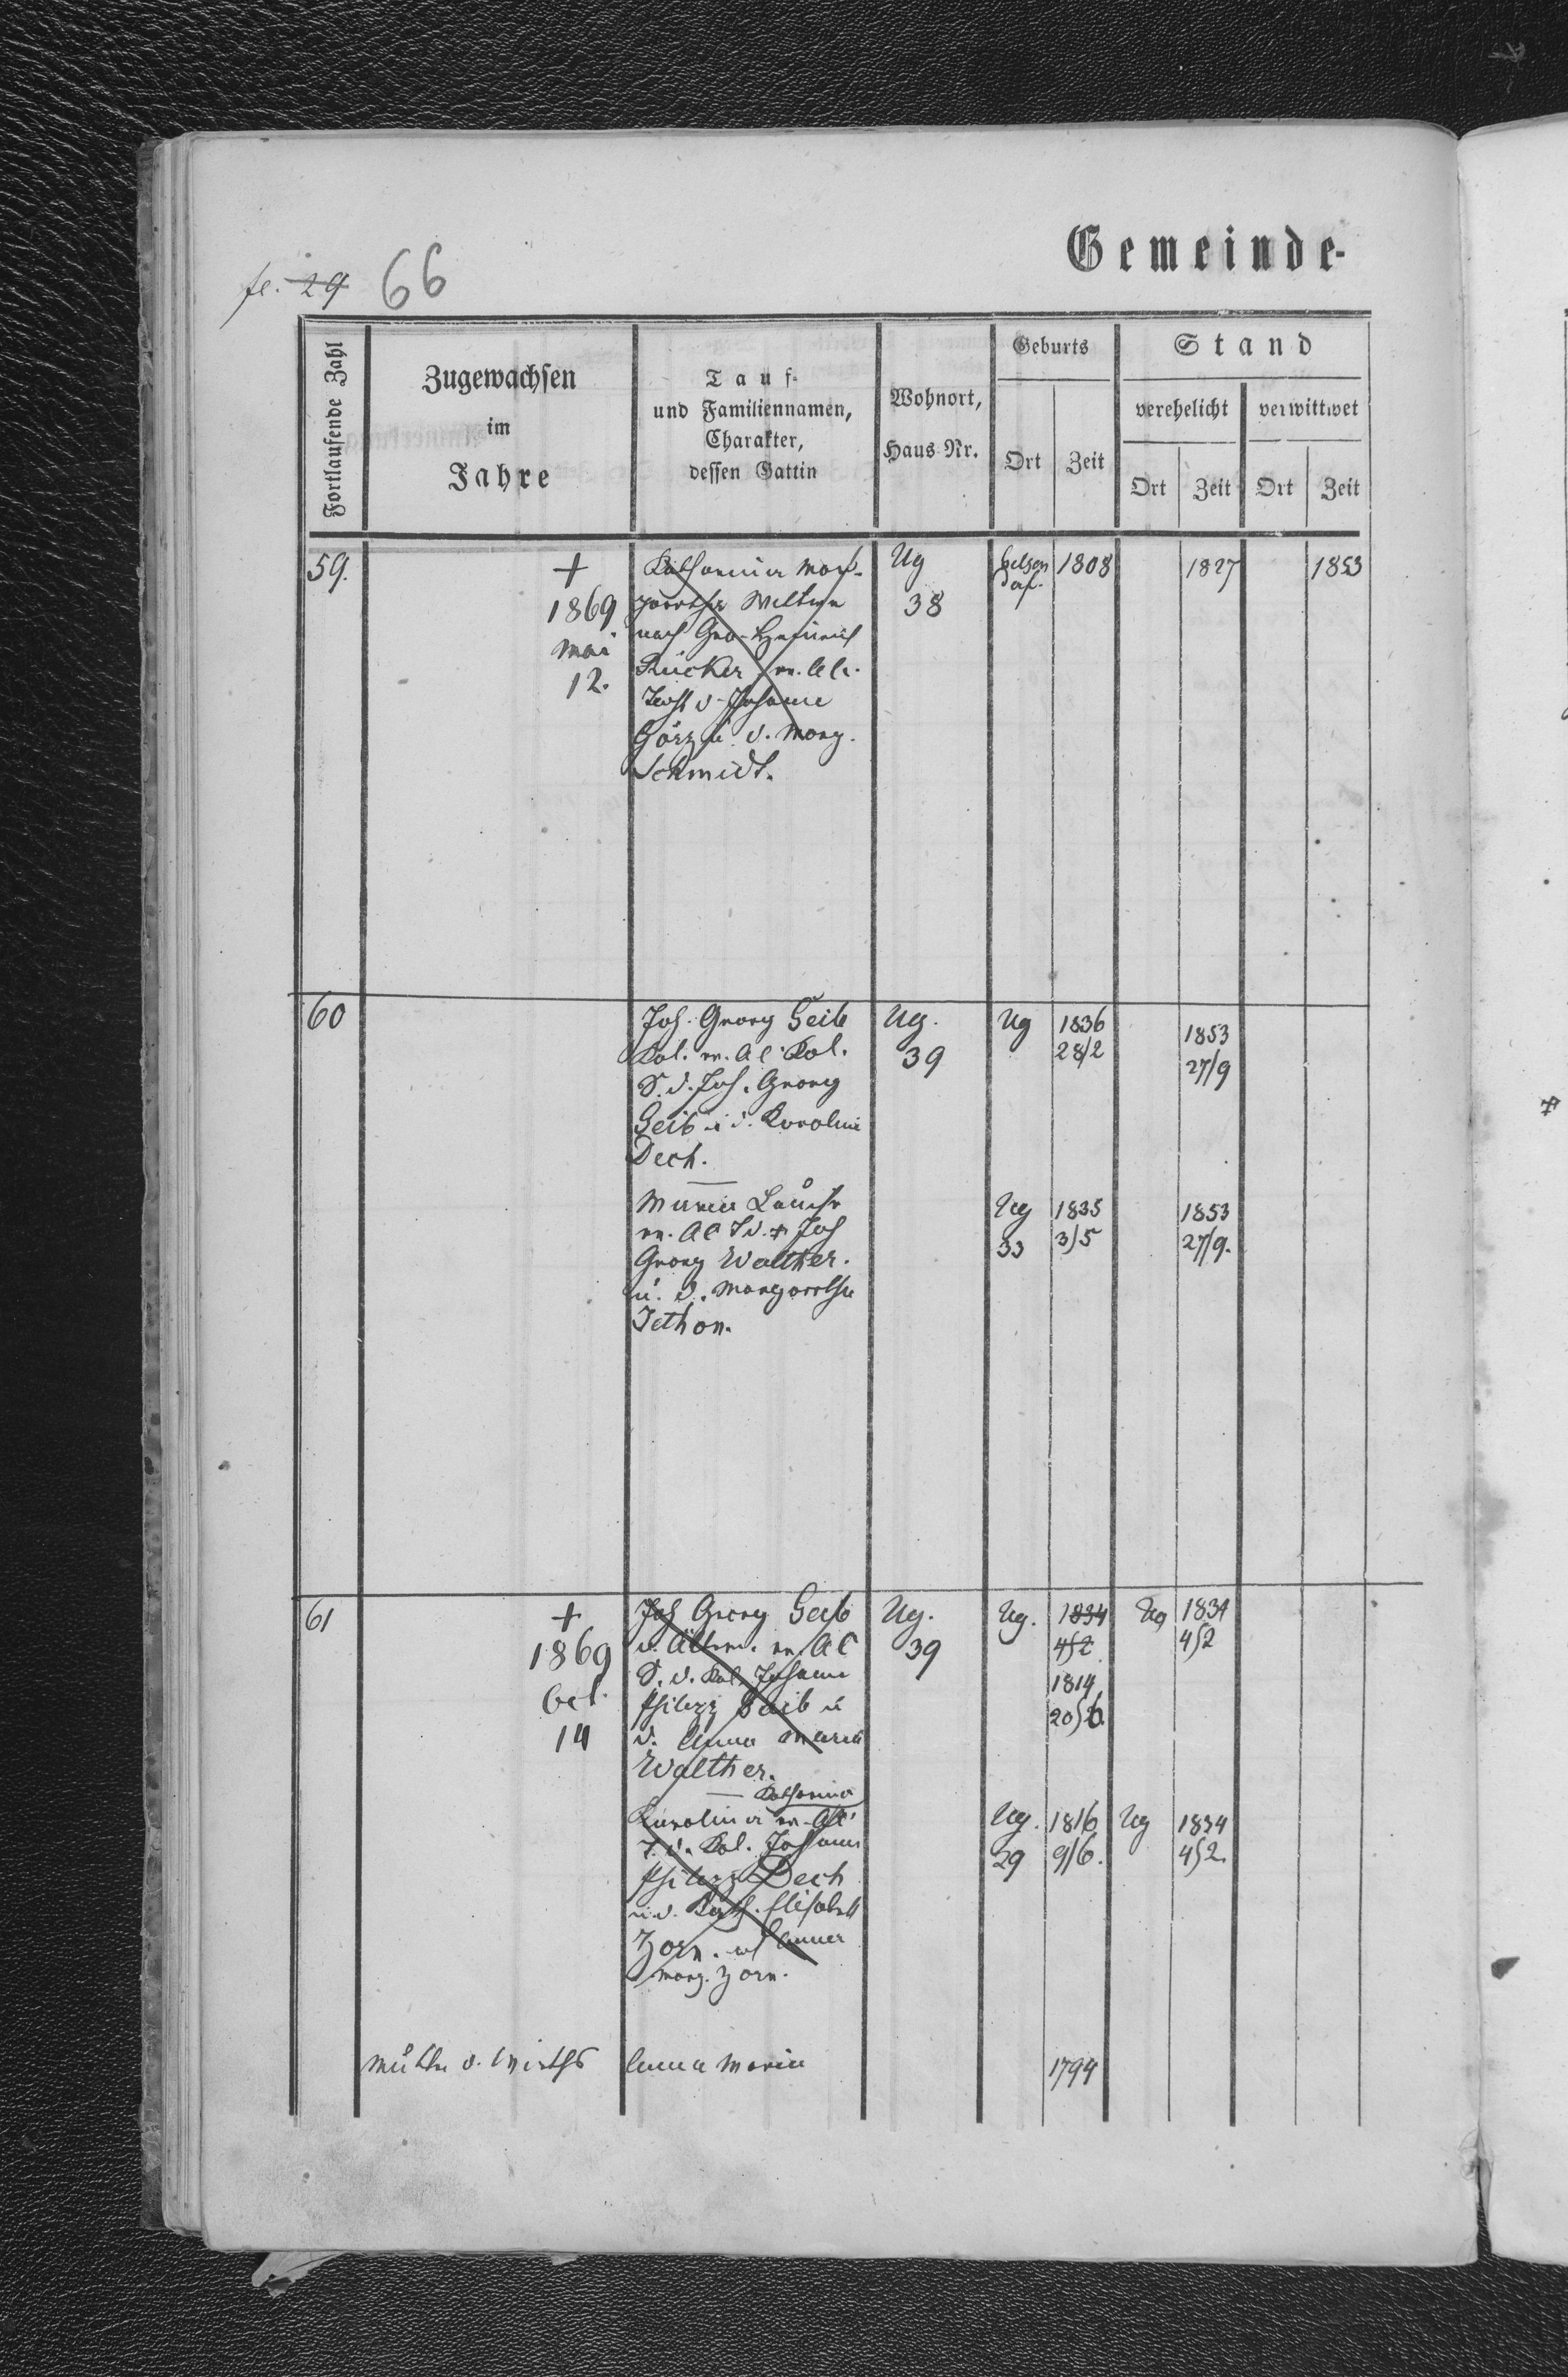 Gemeinde-
fl. 29 66
Fortlaufende Zahl
Zugewachsen
im
Jahre
Tauf-
und Familiennamen,
Charakter,
dessen Gattin
Wohnort,
Haus-Nr.
Geburts
Ort Zeit
Stand
verehelicht verwittwet
Ort Zeit Ort Zeit
59. + Katharina Ug 1808 1827 1853
1869 Wittwe 38
Mai nach Geo. Heinrich
12. Rücker ev. AC.
Tocht. v. Johann
Görz u. v. Marg.
Schmidt.
60 Joh. Georg Geib Ug. Ug 1836 1853
Kol. ev. AC. Kol. 39 28/2 27/9
S. d. Joh. Georg
Geib u. d. Karolina
Dech.
Maria Ug 1835 1853
ev. AC T. d. + Joh 33 3/5 27/9.
Georg Walther.
u. d. Margaretha
Jethon.
61 + Joh Georg Geib Ug. Ug. 1834 Ug 1834
1869 d. Ältere. ev. AC 39 4/2 4/2
Oct. S. d. Kol. Johann 1814
14 Philipp Geib u 20/6
d. Anna Maria
Walther.
Katharina
Karolina ev. AC Ug. 1816 Ug 1834
T. d. Kol. Johann 29 9/6. 4/2.
Philipp Dech
u. d. Kath. Elisabeth
Zorn. Anna
Marg. Zorn.
Mutter d. Wirths Anna Maria 1794